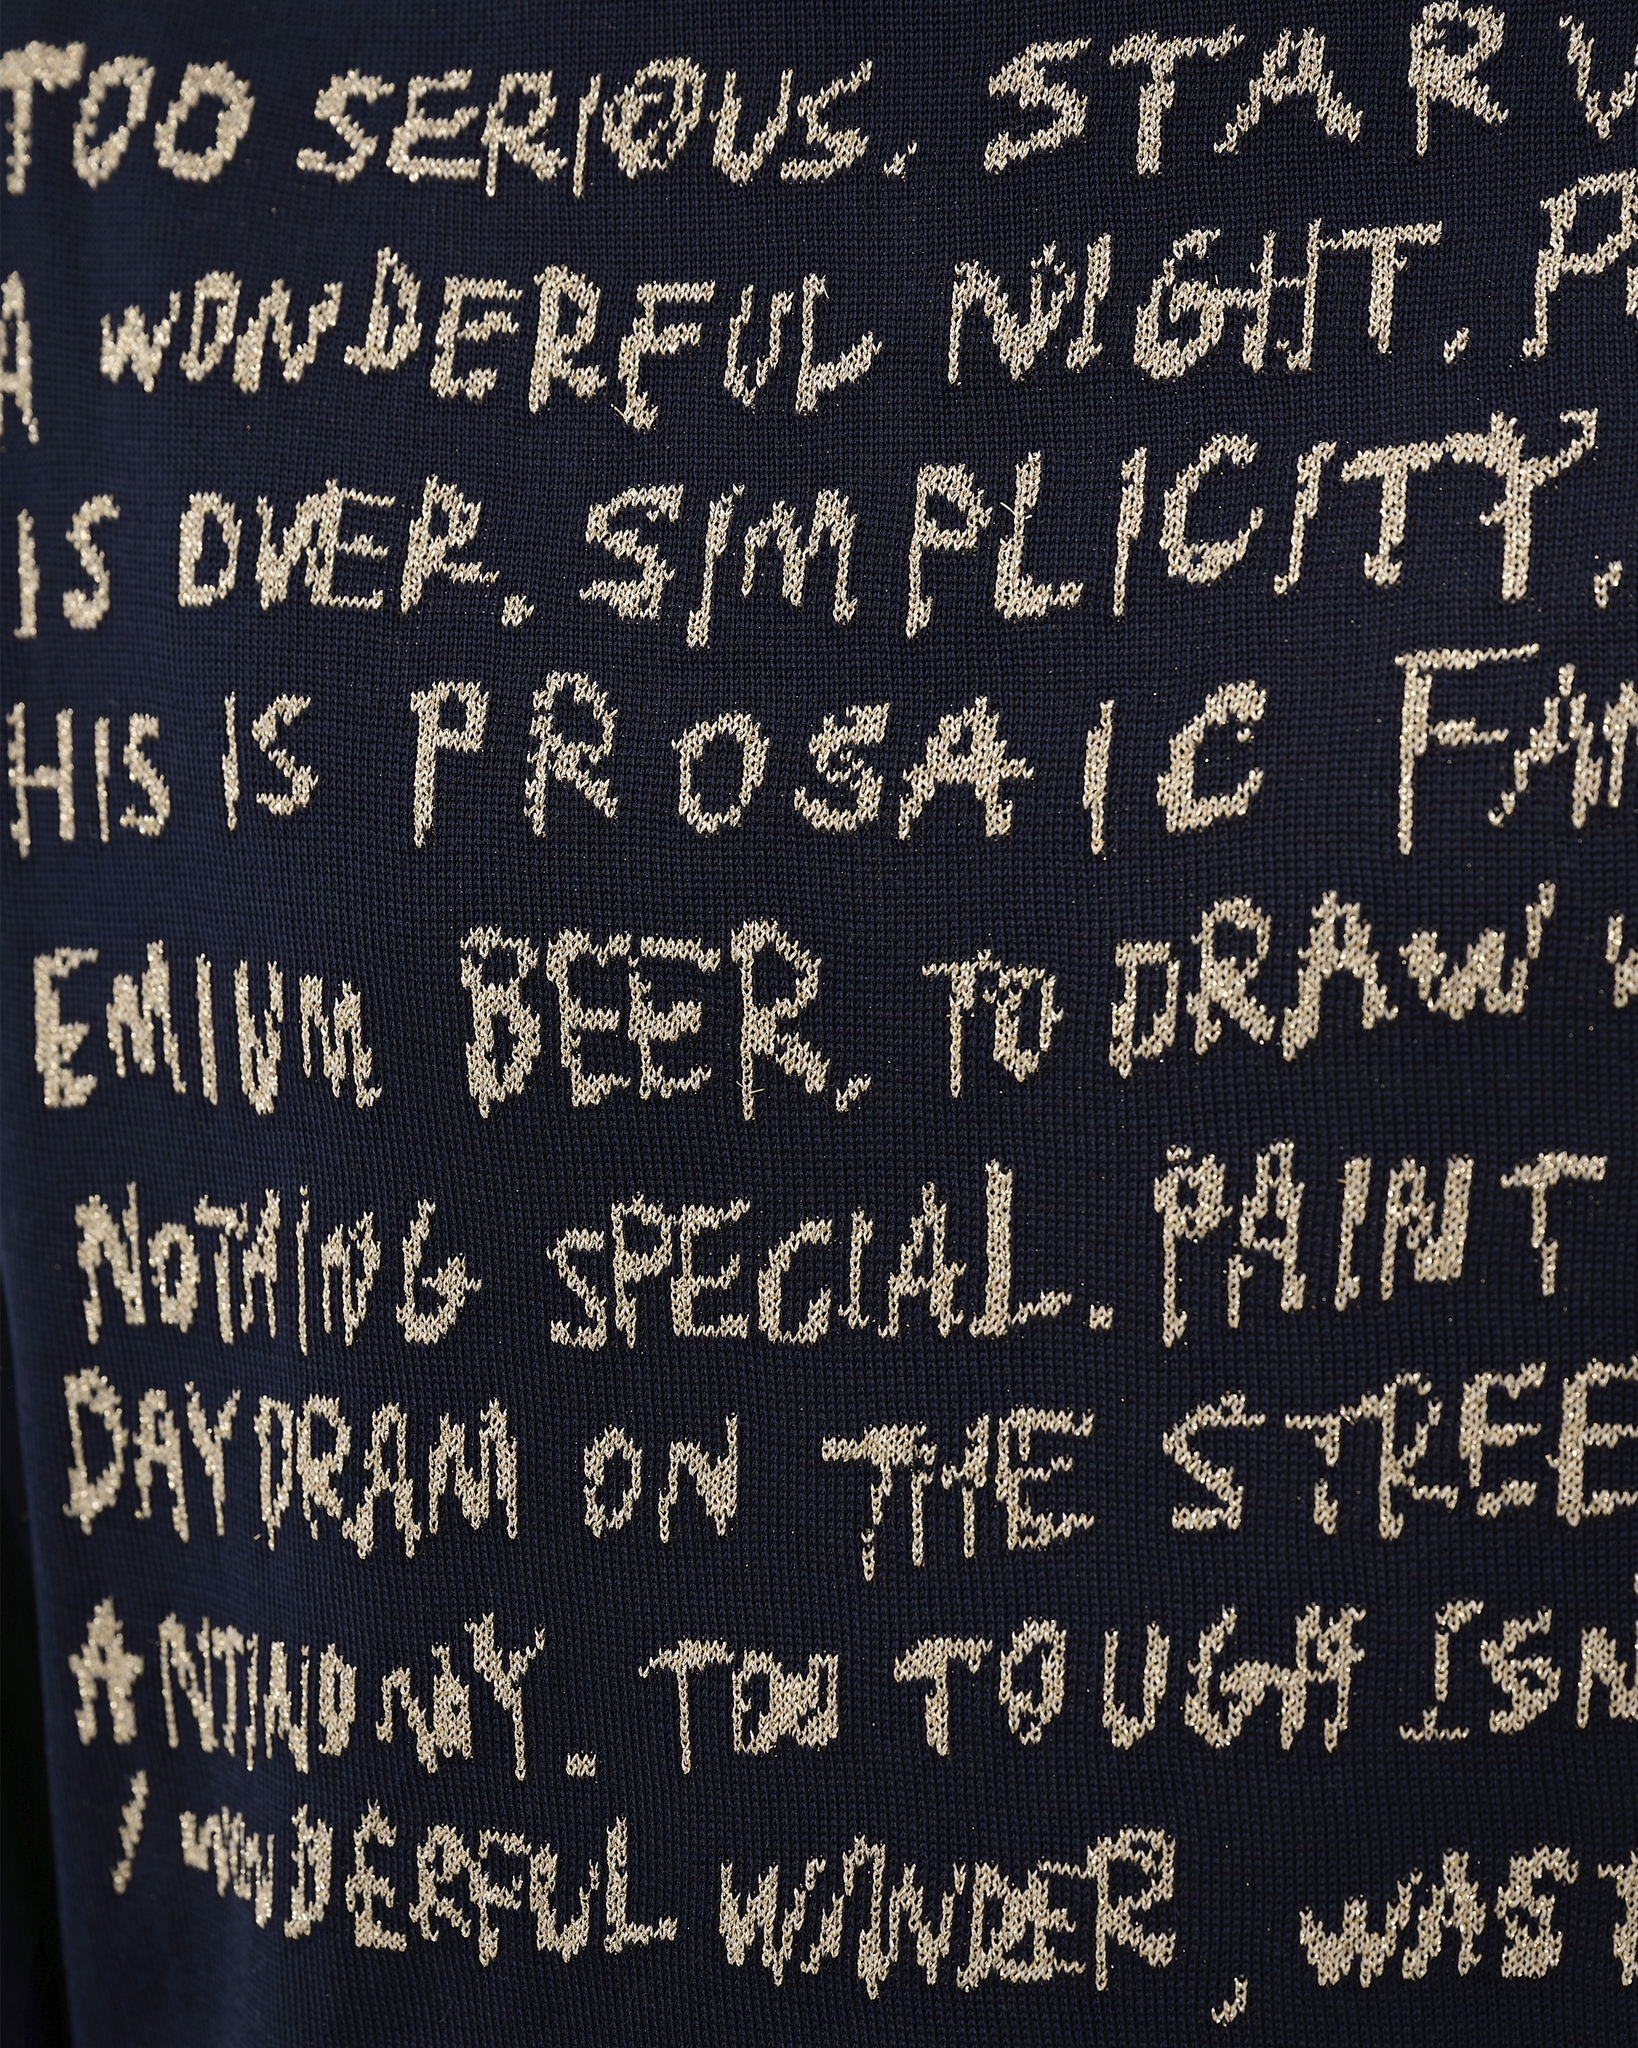 TOO SERIOUS. STARV
A WONDERFUL NIGHT. P
IS OVER. SIMPLICITY.
HIS IS PROSAIC FAM
EMIUM BEER. TO DRAW
NOTHING SPECIAL. PAINT
DAYDRAM ON THE STREE
ANTINOMY. TOO TOUGH ISN
I WONDERFUL WINDER, WAS